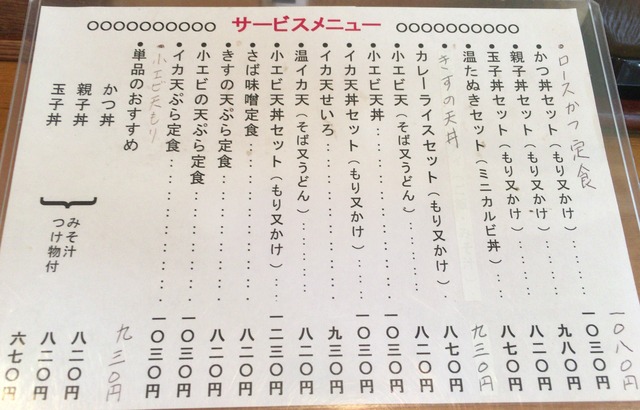 サービスメニュー
・ロースかつ定食 一〇八〇円
●かつ丼セット(もり又かけ)……一〇三〇円
●親子丼セット(もり又かけ)……九八〇円
●玉子丼セット(もり又かけ)……八七〇円
●温たぬきセット(ミニカルビ丼)…八七〇円
・きすの天丼 九三〇円
●カレーライスセット(もり又かけ)…八七〇円
●小エビ天(そば又うどん)……八二〇円
●小エビ天丼……一〇三〇円
●イカ天丼セット(もり又かけ)……一〇三〇円
●イカ天せいろ……九三〇円
●温イカ天(そば又うどん)……八二〇円
●小エビ天丼セット(もり又かけ)…一二三〇円
●さば味噌定食……八二〇円
●きすの天ぷら定食……八二〇円
●小エビの天ぷら定食……一〇三〇円
●イカ天ぷら定食……一〇三〇円
・小エビ天もり 九三〇円
●単品のおすすめ
かつ丼 八二〇円
親子丼 八二〇円
玉子丼 六七〇円
みそ汁
つけ物付